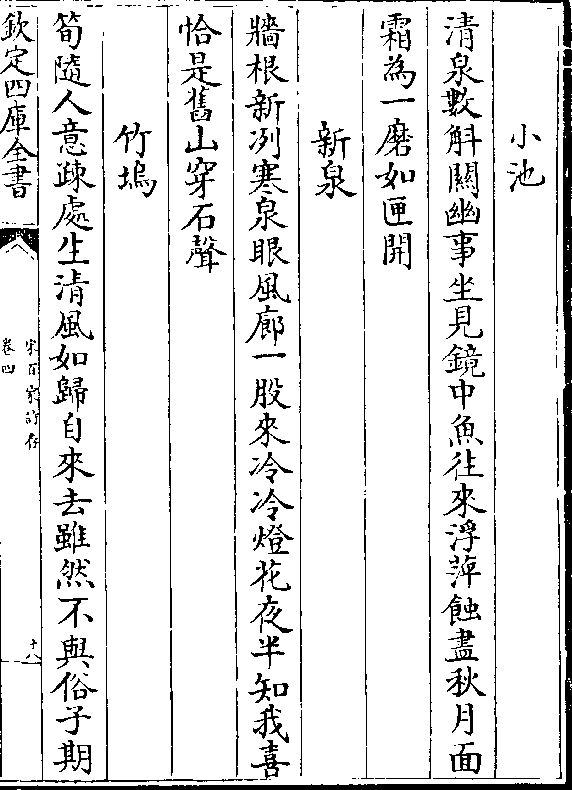 小池
清泉數斛關幽事坐見鏡中魚往來浮萍蝕盡秋月面
霜為一磨如匣開
新泉
牆根新冽寒泉眼風廊一股來冷冷燈花夜半知我喜
恰是舊山穿石聲
竹塢
筍隨人意疎處生清風如歸自來去雖然不與俗子期
欽定四庫全書
宋百家詩存
卷四
十八